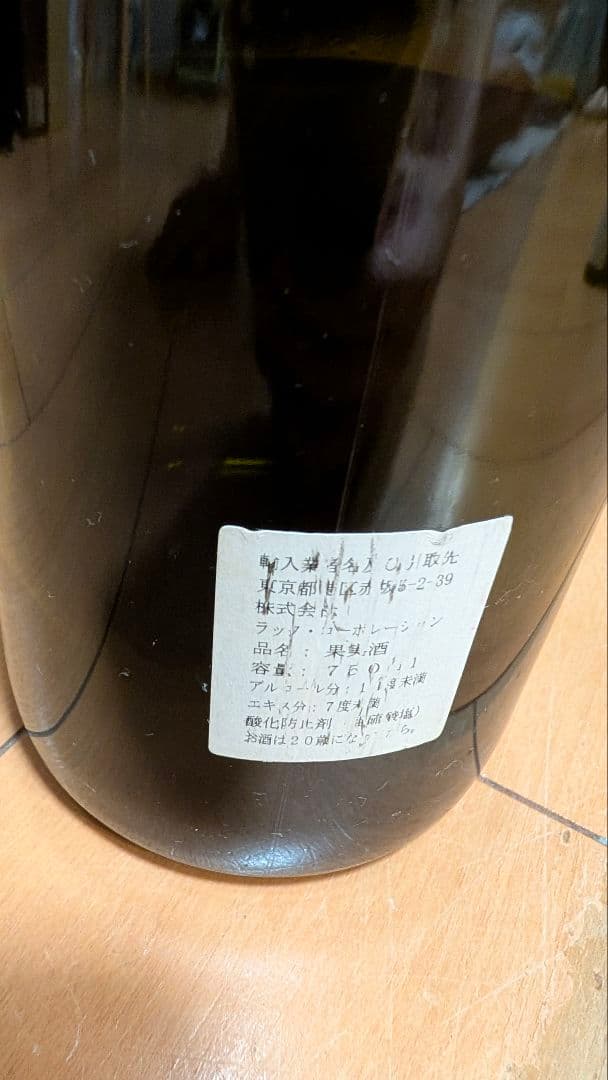 輸入業者名及び引取先
東京都港区赤坂5-2-39
株式会社
ラック・コーポレーション
品名: 果実酒
容量: 750ml
アルコール分: 度未満
エキス分: 7度未満
酸化防止剤 亜硫酸塩)
お酒は20歳になってから。